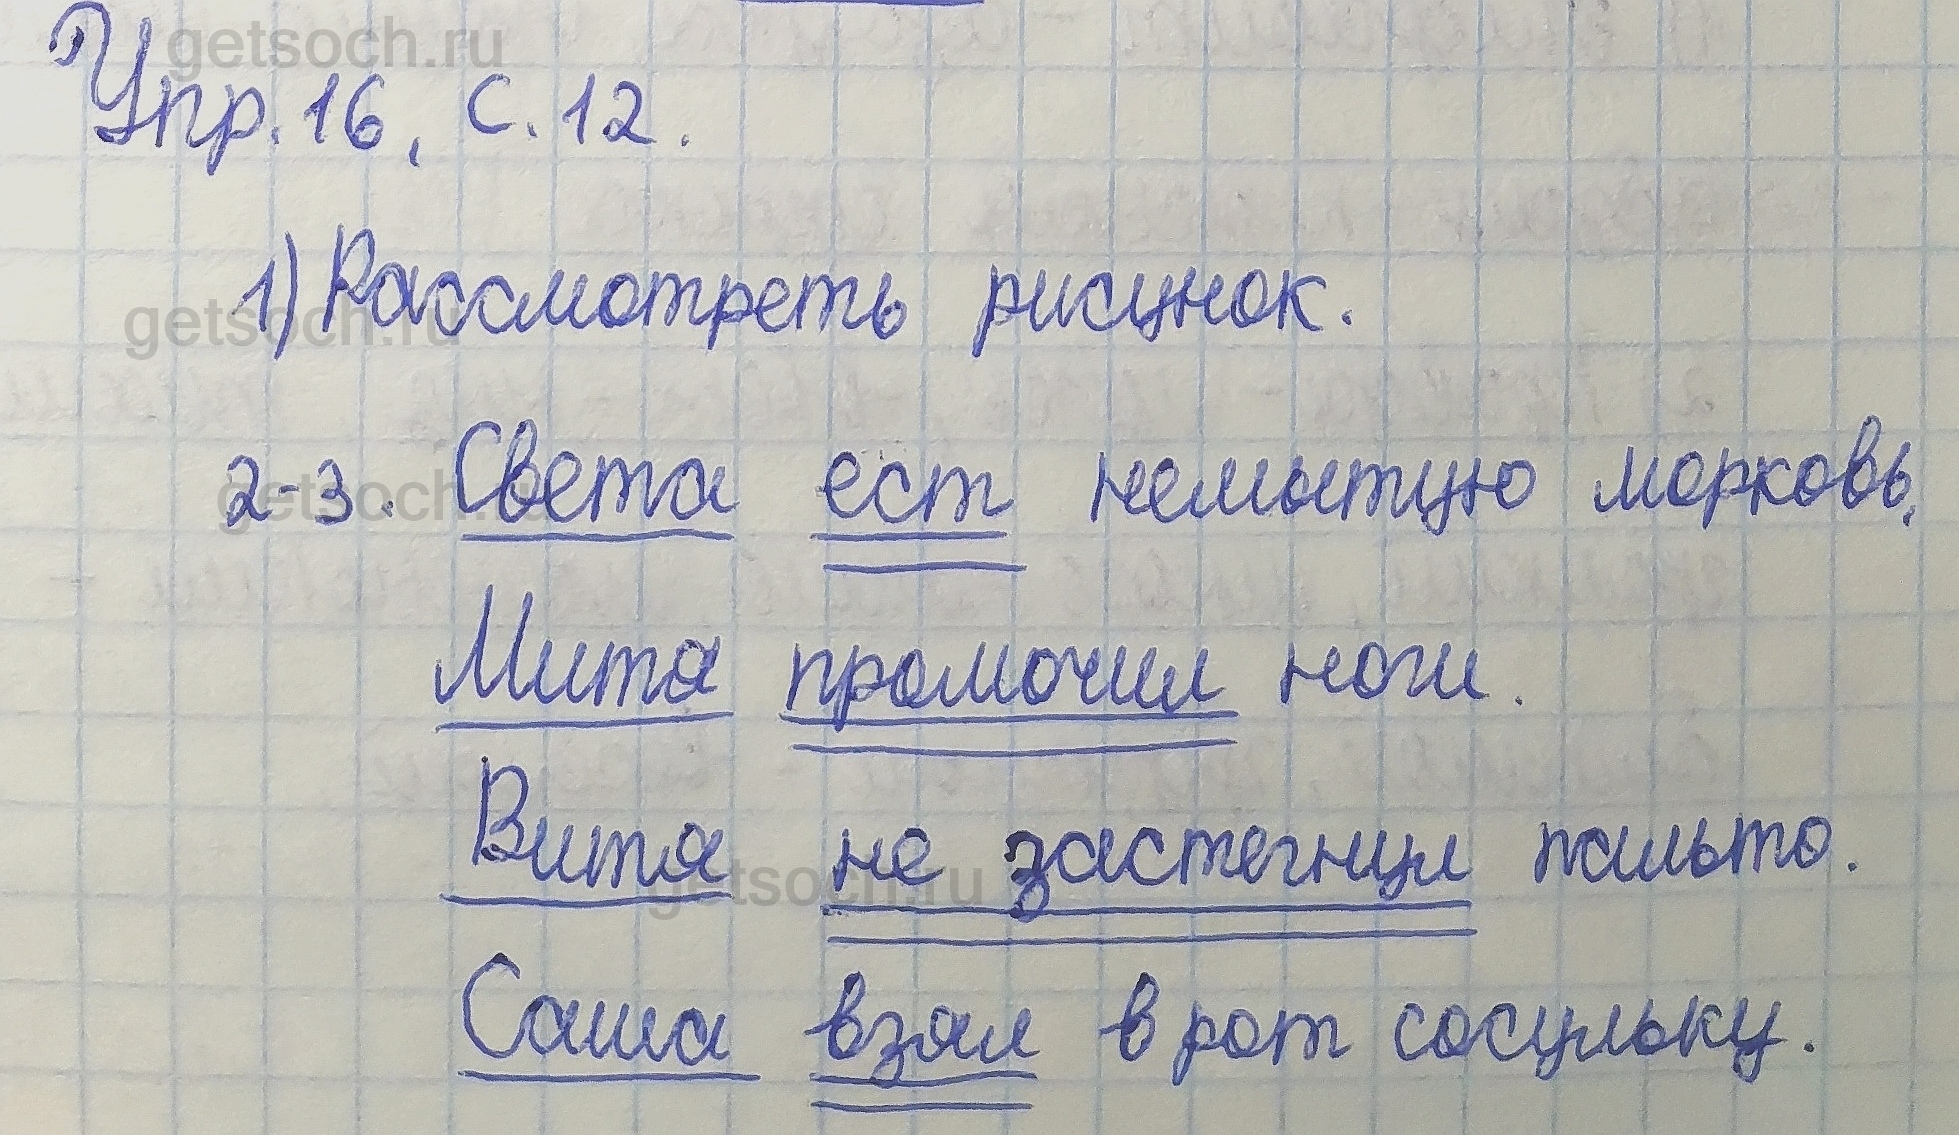 getsoch.ru
Упр. 16, с. 12.
1) Рассмотреть рисунок.
getsoch.ru
2-3. Света ест немытую морковь.
getsoch.ru
Митя промочил ноги.
Витя не застегнул пальто.
getsoch.ru
Саша взял в рот сосульку.